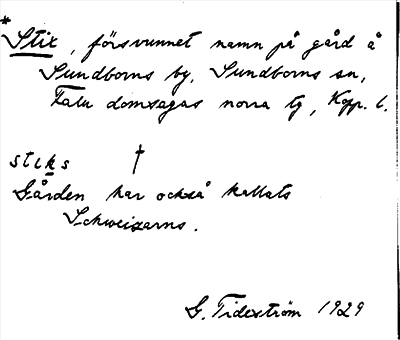 *Stix, försvunnet namn på gård å
Sundborns by, Sundborns sn,
Falu domsagas norra tg, Kopp. l.
stɩks †
Gården har också kallats
Schweizarns.
G. Tideström 1929